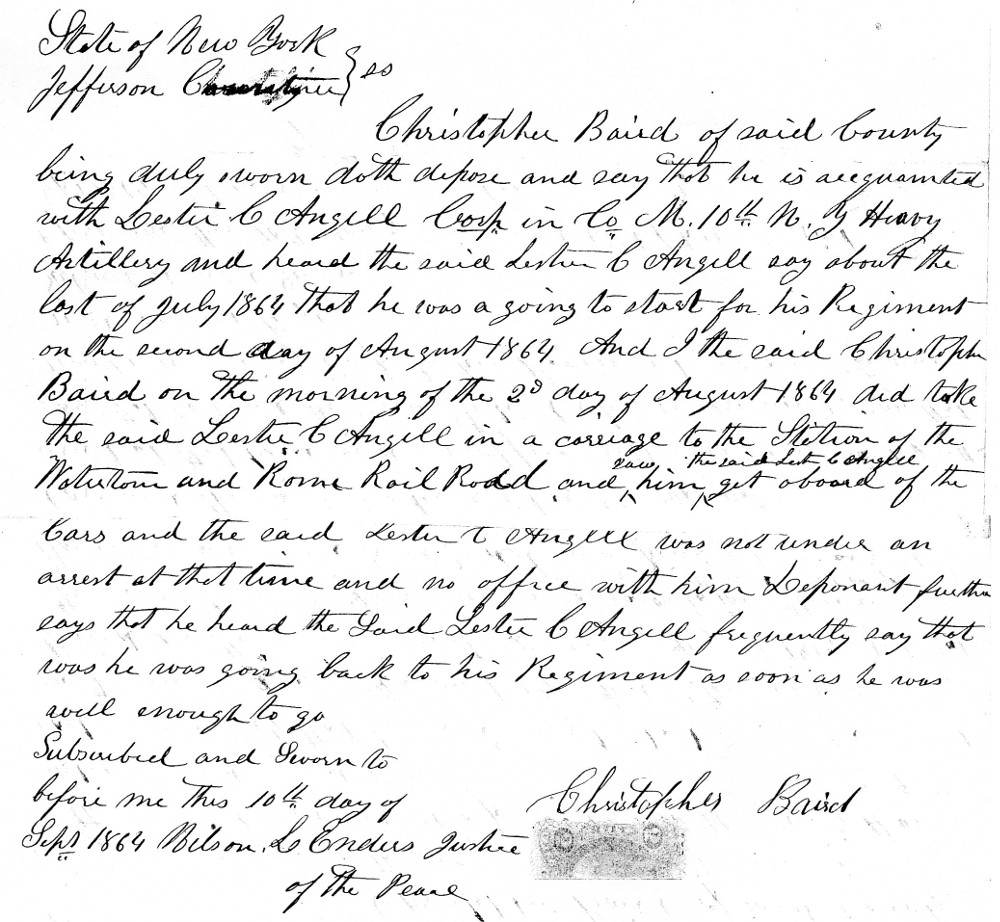 State of New York
Jefferson } ss
Christopher Baird of said County
being duly sworn doth depose and say that he is acequanited
with Lester C Angell Corp in Co M. 10th N. Y Heavy
Artillery and heard the said Lester C Angell say about the
last of July 1864 that he was a going to start for his Regiment
on the second day of August 1864. And I the said Christopher
Baird on the morning of the 2d day of August 1864 did take
the said Lester C Angell in a carriage to the Station of the
saw the said Lest C Angell
Watertown and Rome Rail Road and him get aboard of the
Cars and the said Lester C Angell was not under an
arrest at that time and no officer with him Deponant further
says that he heard the Said Lester C Angell frequently say that
was he was going back to his Regiment as soon as he was
well enough to go
Subscribed and Sworn to
before me this 10th day of
Christopher Baird
Sept 1864 L Enders Justice
of the Peace